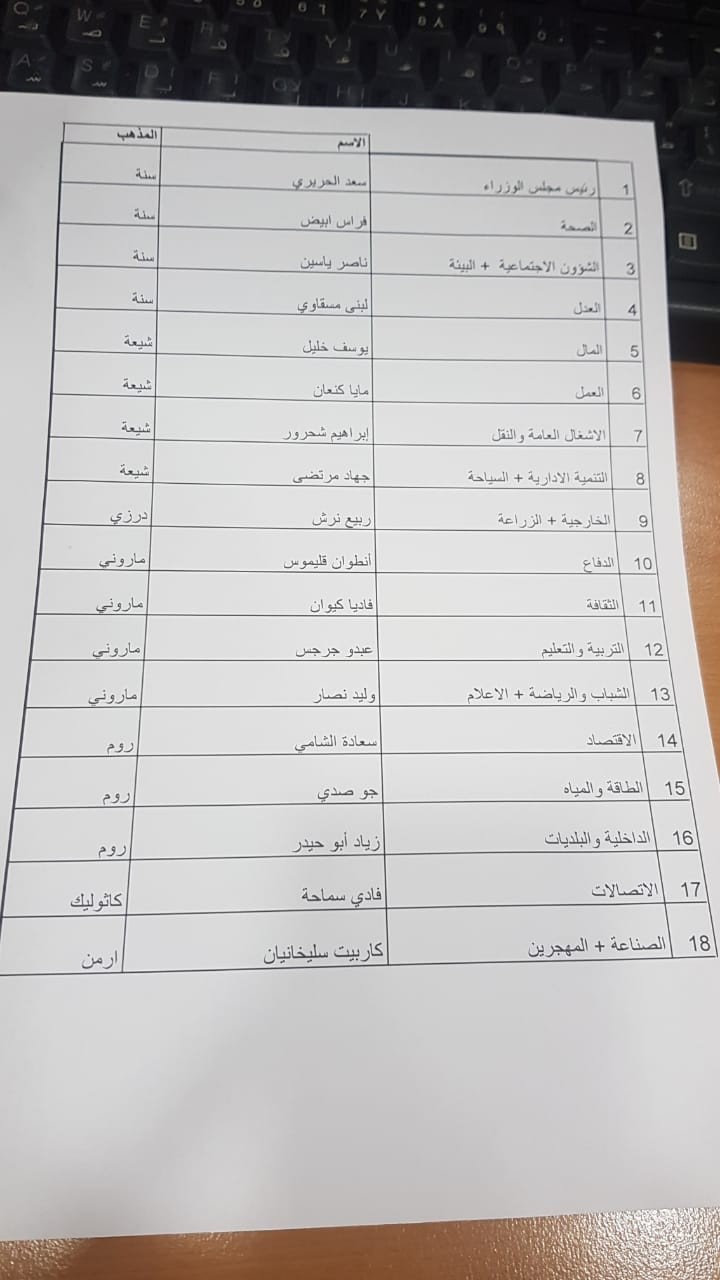 الاسم المذهب
1 رئيس مجلس الوزراء سعد الحريري سنة
2 الصحة فراس ابيض سنة
3 الشؤون الاجتماعية + البيئة ناصر ياسين سنة
4 العدل لبنى مسقاوي سنة
5 المال يوسف خليل شيعة
6 العمل مايا كنعان شيعة
7 الاشغال العامة والنقل إبراهيم شحرور شيعة
8 التنمية الادارية + السياحة جهاد مرتضى شيعة
9 الخارجية + الزراعة ربيع نرش درزي
10 الدفاع أنطوان قليموس ماروني
11 الثقافة فاديا كيوان ماروني
12 التربية والتعليم عبدو جرجس ماروني
13 الشباب والرياضة + الاعلام وليد نصار ماروني
14 الاقتصاد سعادة الشامي روم
15 الطاقة والمياه جو صدي روم
16 الداخلية والبلديات زياد أبو حيدر روم
17 الاتصالات فادي سماحة كاثوليك
18 الصناعة + المهجرين كاربيت سليخانيان ارمن